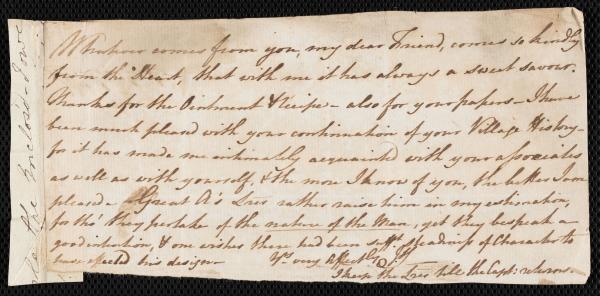 Whatever comes from you, my dear Friend, comes so kindly
from the Heart, that with me it has always a sweet savour.
Thanks for the Ointment & Recipe – also for your papers – I have
been much pleased with your continuation of your Village History –
for it has made me intimately acquainted with your associates
as well as with yourself, & the more I know of you, the better I am
pleased – Great A's Lres rather raise him in my estimation,
for tho' they partake of the nature of the Man, yet they bespeak a
good intention, & one wishes there had been suff.t steadiness of Character to
have effected his design – Yrs very affectly
I keep the Lres till the Capt: returns –
the Inclosed – I owe